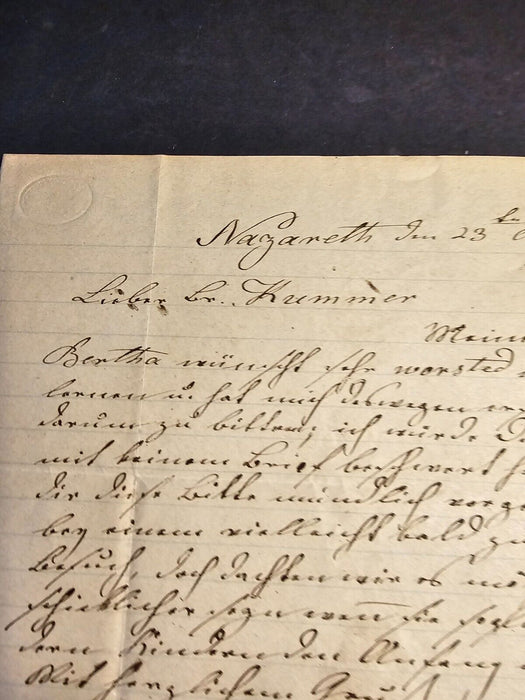 Nazareth den 23ten
Lieber Br. Kummer
Meine
Bertha wünscht sehr worsted
lernen u. hat mich deswegen
darum zu bitten; ich würde
mit keinem Brief beschwert
dir diese Bitte mündlich
bey einem vielleicht bald
Besuch, doch dachten wir es
schicklicher seyn wen̄ sie
dern Kindern den Anfang
Mit herzlichem